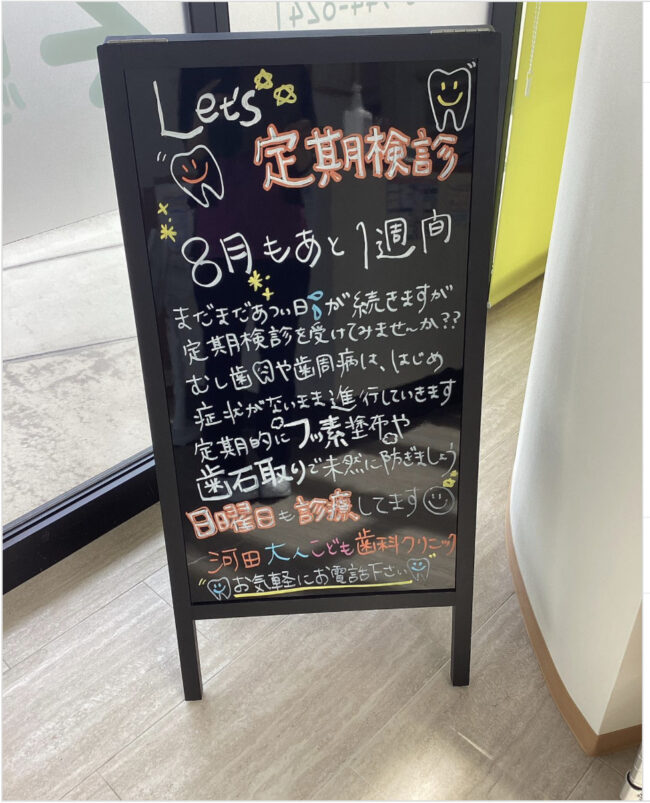 Let's
定期検診
8月もあと1週間
まだまだあつい日が続きますが
定期検診を受けてみませんか??
むし歯や歯周病は、はじめ
症状がないまま進行していきます
定期的にフッ素塗布や
歯石取りで未然に防ぎましょう
日曜日も診療してます
河田大人こども歯科クリニック
お気軽にお電話下さい